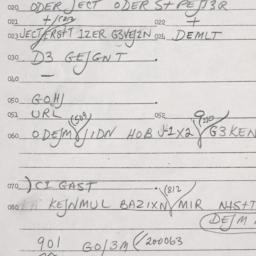 020 ODER JECT ODER S+ PEJ13Q
021 + 022 +
023 JECT IZER G3VEJ2N 024 DEMLT
030 D3 GEJGNT.
040 —
050 GOHJ
051 URL 052
060 ODEJM JIDN HOB J1X2 G3KEN
070 ) CI GAST
(812
080 KEJNMUL BAZIXN MIR NHST
DEJM
901 GO/3M (/200063